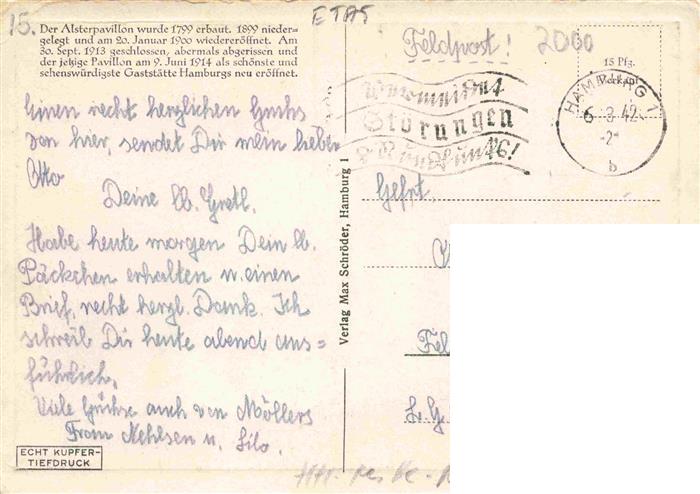 15.
ETAS
Der Alsterpavillon wurde 1799 erbaut. 1899 nieder-
gelegt und am 20. Januar 1900 wiedereröffnet. Am
30. Sept. 1913 geschlossen, abermals abgerissen und
der jetzige Pavillon am 9. Juni 1914 als schönste und
sehenswürdigste Gaststätte Hamburgs neu eröffnet.
Einen recht herzlichen Gruhs
von hier, sendet Dir mein lieber
Otto
Deine lb. Gretl.
Habe heute morgen Dein lb.
Päckchen erhalten u. einen
Brief, recht herzl. Dank. Ich
schreib Dir heute abend aus=
führlich.
Viele Grühse auch von Möllers
From Nehlsen u. Lilo.
ECHT KUPFER-
TIEFDRUCK
Verlag Max Schröder, Hamburg 1
Feldpost!
2000
15 Pfg.
Vermeidet
Störungen
d. Rundfunks!
HAMBURG 1
6-3.42.-
-2-
b
Gefrt.
Fel
L. G.